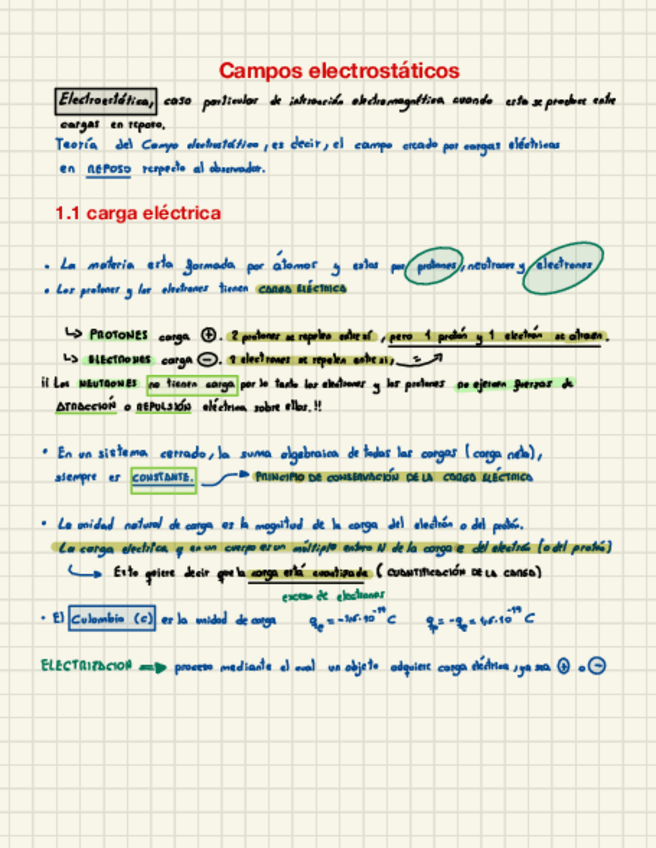 Campos electrostáticos
Electrostática, caso particular de interacción electromagnética cuando esta se produce entre
cargas en reposo.
Teoría del Campo electrostático, es decir, el campo creado por cargas eléctricas
en REPOSO respecto al observador.
1.1 carga eléctrica
• La materia esta formada por átomos y estos por protones, neutrones y electrones
• Los protones y los electrones tienen CARGA ELÉCTRICA
↳ PROTONES carga ⊕. 2 protones se repelen entre sí, pero 1 protón y 1 electrón se atraen.
↳ ELECTRONES carga ⊖. 2 electrones se repelen entre sí,
¡¡ Los NEUTRONES no tienen carga por lo tanto los electrones y los protones no ejercen fuerzas de
ATRACCIÓN o REPULSIÓN eléctrica sobre ellos.!!
• En un sistema cerrado, la suma algebraica de todas las cargas (carga neta),
siempre es CONSTANTE. → PRINCIPIO DE CONSERVACIÓN DE LA CARGA ELÉCTRICA
• La unidad natural de carga es la magnitud de la carga del electrón o del protón.
La carga electrica q en un cuerpo es un múltiplo entero N de la carga e del electrón (o del protón)
↳ Esto quiere decir que la carga está cuantizada (CUANTIFICACIÓN DE LA CARGA)
exceso de electrones
• El Culombio (c) es la unidad de carga
ELECTRIZACION → proceso mediante el cual un objeto adquiere carga eléctrica, ya sea ⊕ o ⊖